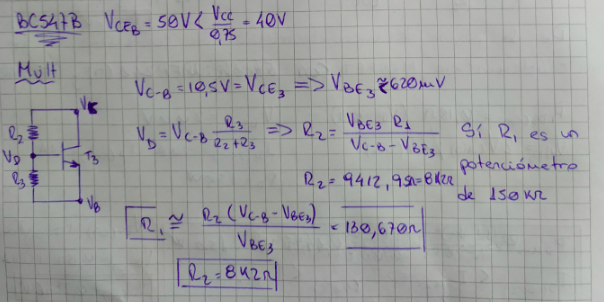 BC547B V_CEB = 50V < Vcc/0,75 = 40V
Mult
V_C-B = 10,5V = V_CE3 => V_BE3 ≈ 620mV
V_D = V_C-B R3/(R2+R3) => R2 = V_BE3 R1/(V_C-B - V_BE3) Sí R1 es un
potenciómetro
R2 = 9412,9Ω = 8K2Ω de 150KΩ
R1 ≅ R2 (V_C-B - V_BE3)/V_BE3 = 130,670Ω
R2 = 8K2Ω
R2
V_D
T3
R3
V_B